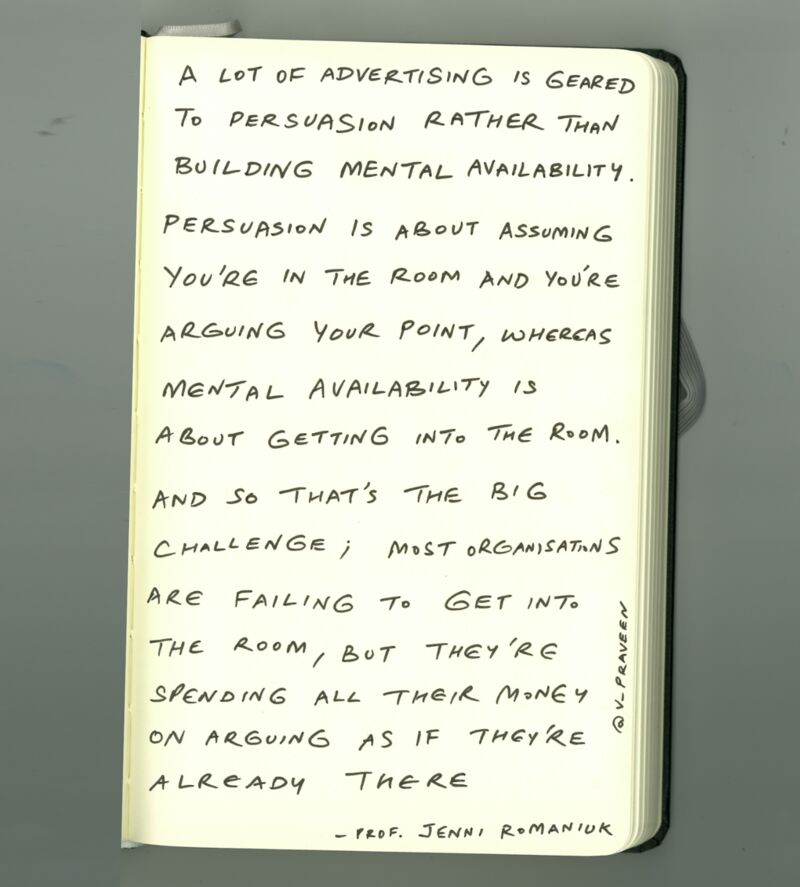 A LOT OF ADVERTISING IS GEARED
TO PERSUASION RATHER THAN
BUILDING MENTAL AVAILABILITY.
PERSUASION IS ABOUT ASSUMING
YOU'RE IN THE ROOM AND YOU'RE
ARGUING YOUR POINT, WHEREAS
MENTAL AVAILABILITY IS
ABOUT GETTING INTO THE ROOM.
AND SO THAT'S THE BIG
CHALLENGE; MOST ORGANISATIONS
ARE FAILING TO GET INTO
THE ROOM, BUT THEY'RE
SPENDING ALL THEIR MONEY
ON ARGUING AS IF THEY'RE
ALREADY THERE
- PROF. JENNI ROMANIUK
@V_PRAVEEN